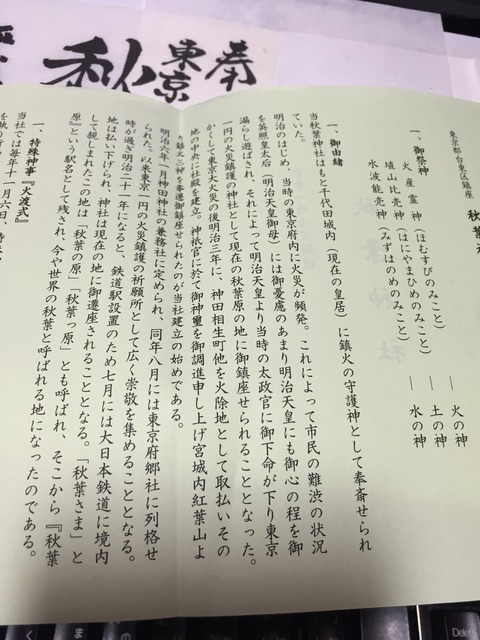 奉
東京
秋
東京都台東区鎮座
秋葉
一、御祭神
火産霊神（ほむすびのみこと）　― 火の神
埴山比売神（はにやまひめのみこと）　― 土の神
水波能売神（みずはのめのみこと）　― 水の神
一、御由緒
当秋葉神社はもと千代田城内（現在の皇居）に鎮火の守護神として奉斎せられ
ていた。
明治のはじめ、当時の東京府内に火災が頻発。これによって市民の難渋の状況
を英照皇太后（明治天皇御母）には御憂慮のあまり明治天皇にも御心の程を御
漏らし遊ばされ、それによって明治天皇より当時の太政官に御下命が下り東京
一円の火災鎮護の神社として現在の秋葉原の地に御鎮座せられることとなった。
かくして東京大火災の後明治三年に、神田相生町他を火除地として取払いその
地の中央に社殿を建立。神祇官に於て御神璽を御調進申し上げ宮城内紅葉山よ
り鎮火三神を奉遷御鎮座せられたのが当社建立の始めである。
明治六年一月神田神社の兼務社に定められ、同年八月には東京府郷社に列格せ
られた。以来東京一円の火災鎮護の祈願所として広く崇敬を集めることとなる。
時が過ぎ明治二十一年になると、鉄道駅設置のため七月には大日本鉄道に境内
地は払い下げられ、神社は現在の地に御遷座されることとなる。「秋葉さま」と
して親しまれたこの地は「秋葉の原」「秋葉っ原」とも呼ばれ、そこから『秋葉
原』という駅名として残され、今や世界の秋葉と呼ばれる地になったのである。
一、特殊神事『火渡式』
当社では毎年十一月六日、
Delete
ま
の
く